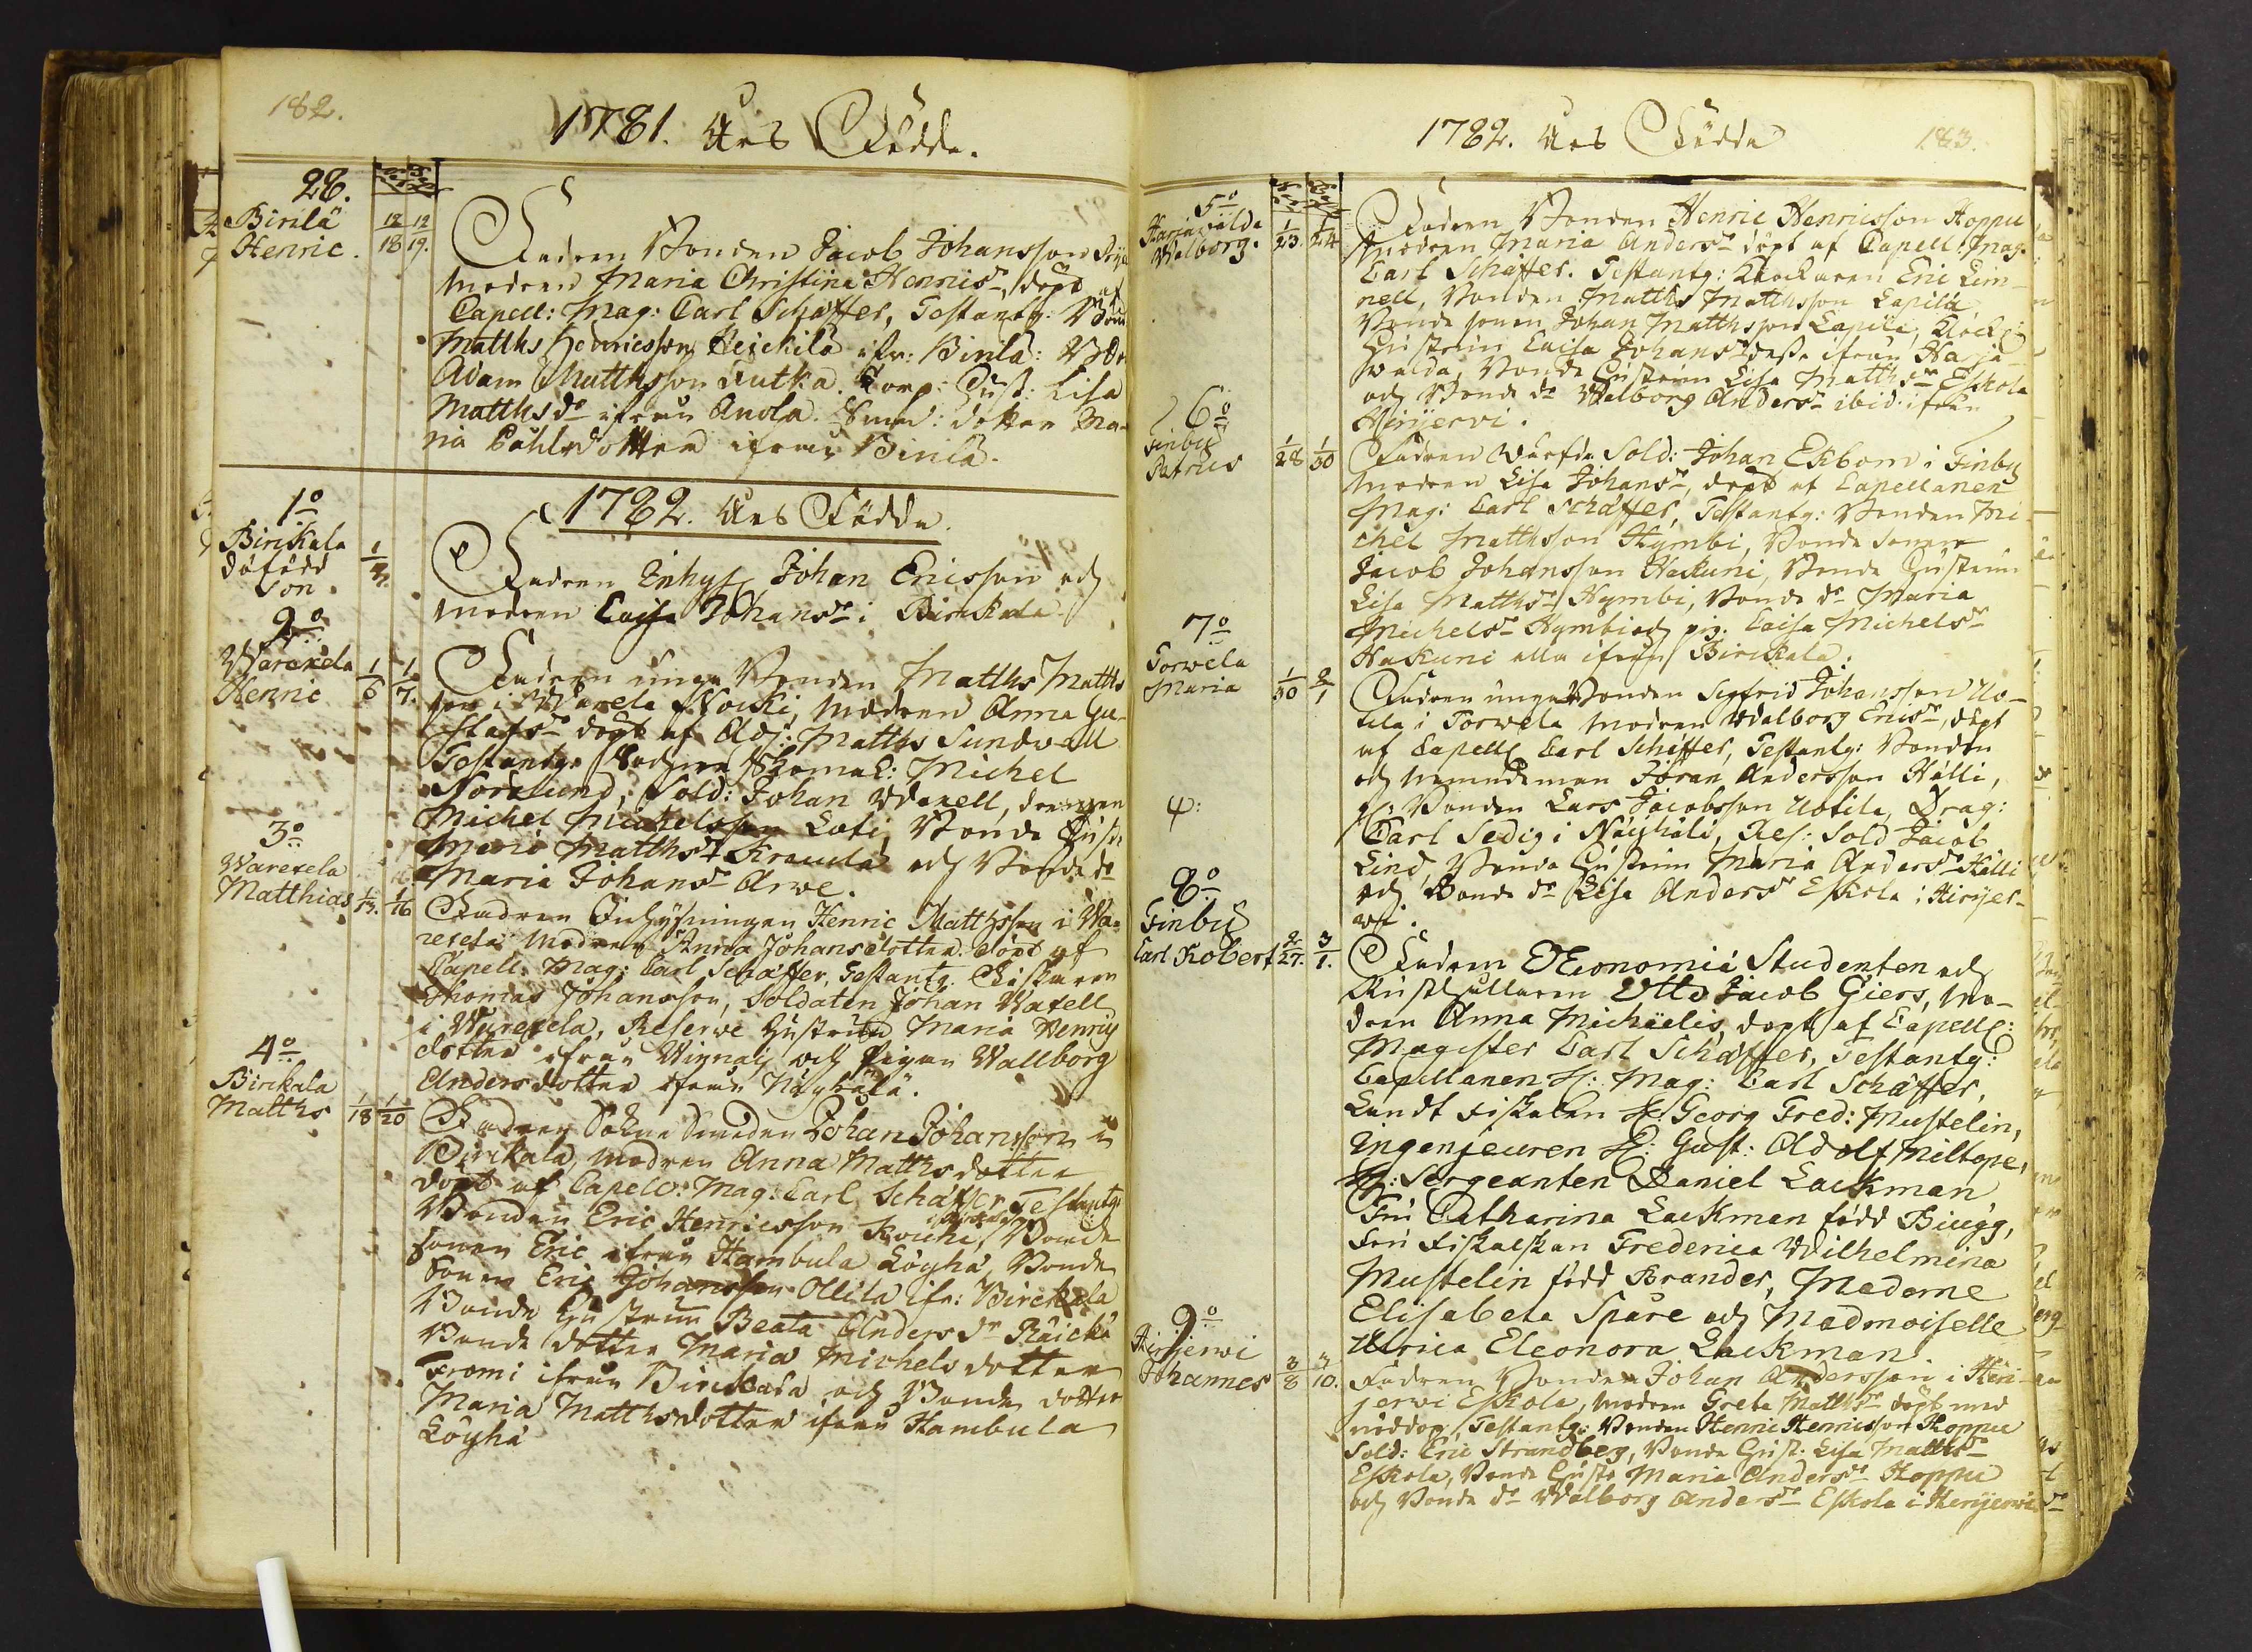 182.
1781. Års Födde.
28.
Birilä
Henric.
12/18 12/19.
Fadren Bonden Jacob Johansson
modren Maria Christina Henrics dr, döpt af
Capell: Mag: Carl Schæffer, Testantg: Bond
Matths Henricsson Heickilä ifr: Birilä: Bdr
Adam Matthsson Lutka. Corp: Hust: Lisa
Matthsdr ifrån Anola. Smed: dotter Ma-
ria Påhlsdotter ifrån Birilä.
1782. Års Födde.
1o
Birikala
dödfödd
Son.
Fadren Inhys Johan Ericsson och
modren Caisa Johansdr i Birckala
2o
Warexela
Henric
1/6 1/7.
Fadren unge Bonden Matths Matths
son i Warela Nocki, modren Anna Gu-
stafsdr döpt af Adj: Matths Sundwall
Testantg: Sochne Skomak: Michel
Forslund, Sold: Johan Warell, drengen
Michel Michelsson Loti, Bonde Hust:
Maria Matthsdr Kraula och Bonde dr
Maria Johansdr Arwe.
3o
Warexela
Matthias
1/13. 1/16
Fadren Inhysningen Henric Matthsson i Wa-
rexela modren Anna Johansdotter. döpt af
Capell: Mag: Carl Schæffer, Testantg. Fiskaren
Thomas Johansson, Soldaten Johan Waxell
i Warexela, Reserve Hustrun Maria Henrics
dotter ifrån Wignais och Pigan Wallborg
Andersdotter ifrån Näyhälä.
4o
Birckala
Matths
1/18 1/20
Fadren Sokne Smeden Johan Johansson i
Birckala, modren Anna Matthsdotter
döpt af Capell: Mag: Carl Schäffer Testantg:
Bonden Eric Henricsson Kouhi, Bonde
sonen Eric ifrån Hambula Löyhä, Bonde
Sonen Eric Johansson Ollila ifr: Birckala
Bonde Hustrun Beata Andersdr Räicka
Bonde dotter Maria Michelsdotter
Fromi ifrån Birckala och Bonde dotter
Maria Matthsdotter ifrån Hambula
Löyhä
1782. Års Födde
183.
5o
Harjawalda
Walborg.
1/23. 1/24
Fadren Bonden Henric Henricsson Hoppu
modren Maria Andersdr döpt af Capell: Mag.
Carl Schäffer. Testantg: Klockaren Eric Lim-
nell, Bonden Matths Matthsson Lapila
Bonde sonen Johan Matthsson Lapila, Klock:
Hustrun Caisa Johansdr desse ifrån Harja-
walda, Bonde Hustrun Lisa Matthsdr Eskola
och Bonde dr Walborg Andersdr ibid. ifrån
Hirijerwi.
6o
Finby
Petrus
1/28 1/30
Fadren Wärfde Sold: Johan Ekbom i Finby
modren Lisa Johansdr, döpt af Capellanen
Mag: Carl Schäffer, Testantg: Bonden Mi
chel Matthsson Hymbi, Bonde Sonen
Jacob Johansson Hakuni, Bonde Hustrun
Lisa Matthsdr Hymbi, Bonde dr Maria
Michelsdr Hymbi och pig. Caisa Michelsdr
Hakuni alla ifrån Birckala.
7o
Torwela
Maria
1/30 2/1
Fadren unge Bonden Sigfrid Johansson Uo-
tila i Torwela modren Walborg Ericsdr, döpt
af Capell: Carl Schäffer, Testantg: Bonden
och Nemndeman Jöran Andersson Hälli,
Bonden Lars Jacobsson Uotila, Drag:
Carl Sedig i Näyhälä, Res: Sold Jacob
Lind, Bonde Hustrun Maria Andersdr Hälli
och Bonde dr Lisa Andersdr Eskola i Hirijer-
wi.
8o
Finby
Carl Robert
2/27. 3/1.
Fadren Œconomiæ Studenten och
Rusthållaren Otto Jacob Giers, mo-
dren Anna Michaelis, döpt af Capell:
Magister Carl Schäffer, Testantg:
Capellanen H: Mag: Carl Schäffer,
Landt Fiskalen H: Georg Fred: Mustelin,
Ingenjeuren H: Gust: Adolf Miltope,
H: Sergeanten Daniel Lackman
Fru Catharina Lackman född Biugg,
Fru Fiskalskan Frederica Wilhelmina
Mustelin född Brander, Madame
Elisabeta Spare och Madmoiselle
Ulrica Eleonora Lackman.
9o
Hirijerwi
Johannes
3/8 3/10.
Fadren Bonden Johan Andersson i Hiri-
jerwi Eskola, modren Greta Matthsdr döpt med
nöddop, Testantg: Bonden Henric Henricsson Hoppu
Sold: Eric Strandberg, Bonde Hust. Lisa Matthsdr
Eskola, Bonde Hustr Maria Andersdr Hoppu
och Bonde dr Walborg Andersdr Eskola i Hirijerwi